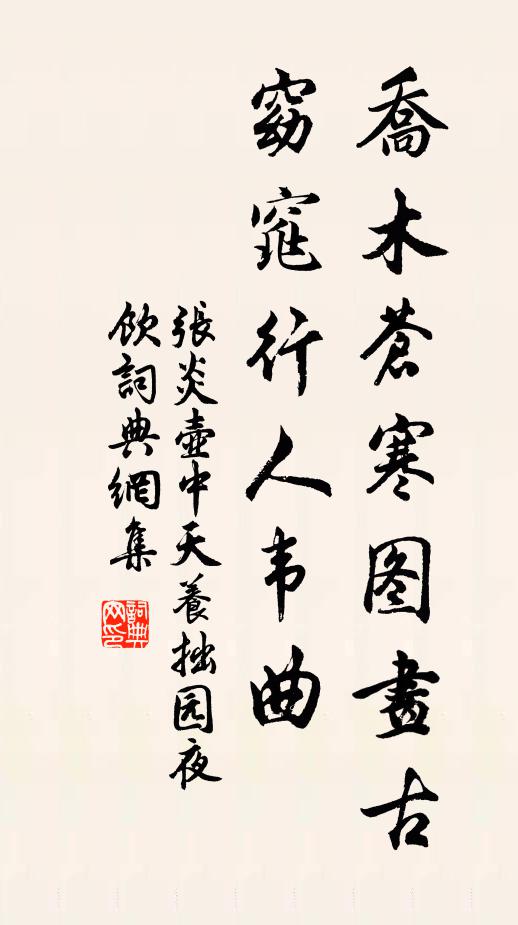 喬木蒼寒图畫古
窈窕行人韦曲
張炎壺中天養拙园夜
飲詞典網集
詞典网印